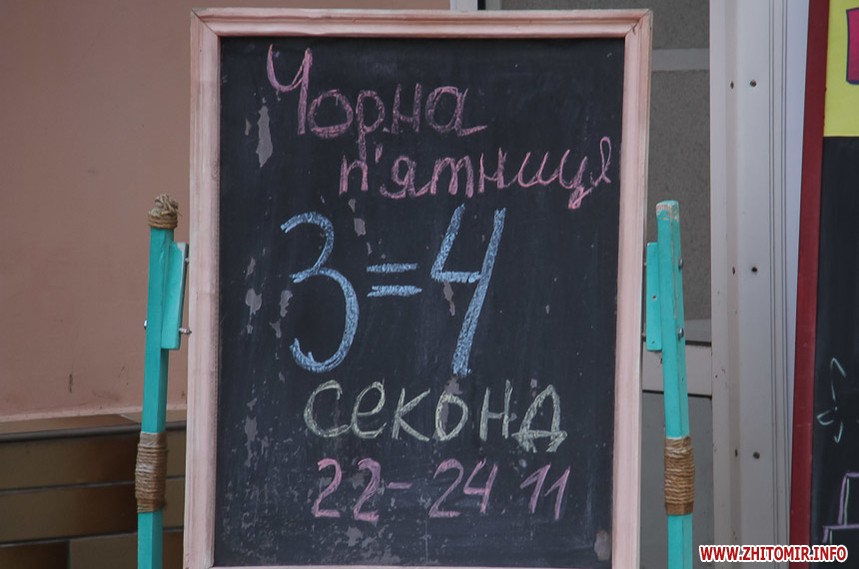 Чорна
п'ятниця
3=4
секонд
22-24 11
WWW.ZHITOMIR.INFO